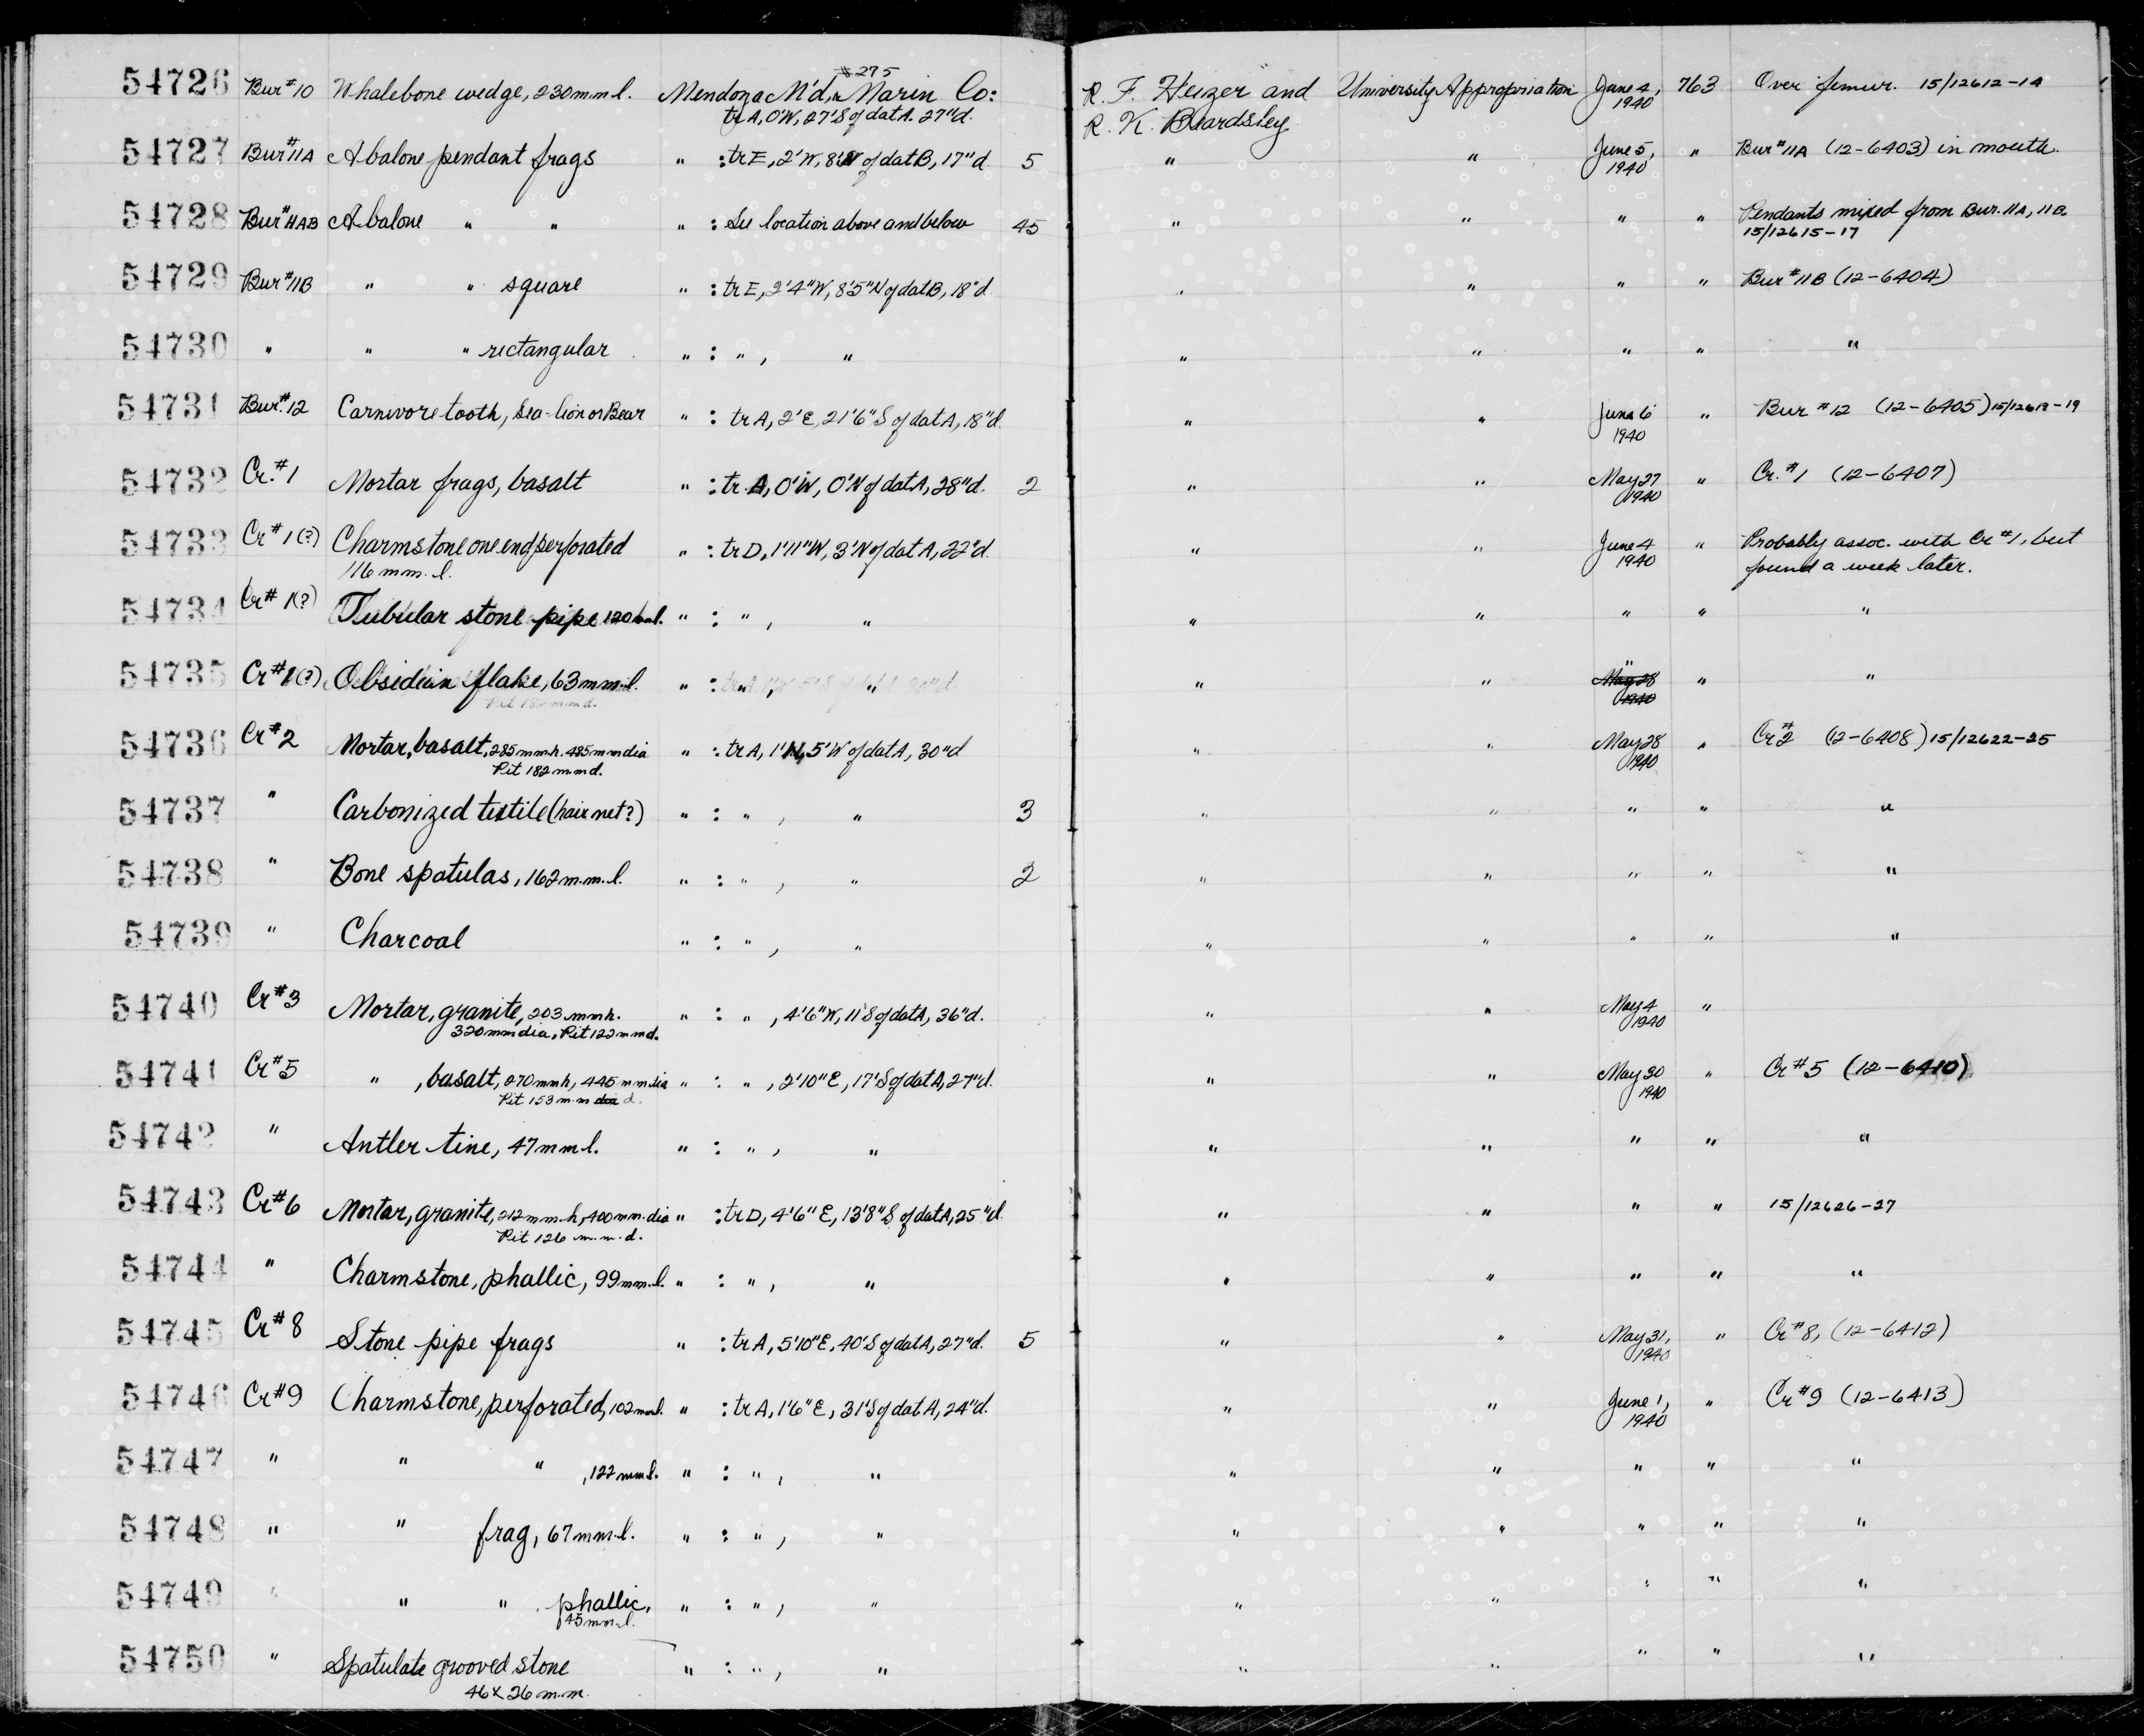 54726 Bur#10 Whalebone wedge, 230 mm l. Mendoza M'd, #275 Marin Co: R. F. Heizer and University Appropriation June 4, 763 Over femur. 15/12612-14
tr A, 0'W, 27'S of dat A. 27"d. R. K. Beardsley 1940
54727 Bur#11A Abalone pendant frags " : tr E, 2'W, 8'N of dat B, 17"d 5 " " June 5, 1940 " Bur#11A (12-6403) in mouth.
54728 Bur#11AB Abalone " " " : See location above and below 45 " " " " Pendants mixed from Bur. 11A, 11B.
15/12615-17
54729 Bur#11B " " square " : tr E, 2'4"W, 8'5"N of dat B, 18"d " " " " Bur#11B (12-6404)
54730 " " " rectangular " : " , " " " " " "
54731 Bur.#12 Carnivore tooth, Sea-lion or Bear " : tr A, 2'E, 21'6"S of dat A, 18"d. " " June 6 1940 " Bur #12 (12-6405) 15/12618-19
54732 Cr.#1 Mortar frags, basalt " : tr. A, 0'W, 0'N of dat A, 28"d. 2 " " May 27 1940 " Cr.#1 (12-6407)
54733 Cr#1(?) Charmstone one end perforated " : tr D, 1'11"W, 3'N of dat A, 22"d. " " June 4 1940 " Probably assoc. with Cr#1, but
116 mm. l. found a week later.
54734 Cr#1(?) Tubular stone pipe 120 mm l. " : " , " " " " " "
54735 Cr#1(?) Obsidian flake, 63 mm l. " : " , " " " " May 28 1940 " "
54736 Cr#2 Mortar, basalt, 285 mm h. 485 mm dia " : tr A, 1'N, 5'W of dat A, 30"d " " May 28 1940 " Cr#2 (12-6408) 15/12622-25
Pit 182 mm d.
54737 " Carbonized textile (hair net?) " : " , " 3 " " " " "
54738 " Bone spatulas, 162 m.m. l. " : " , " 2 " " " " "
54739 " Charcoal " : " , " " " " " "
54740 Cr#3 Mortar, granite, 203 mm h. " : " , 4'6"W, 11'S of dat A, 36"d. " " May 4 1940 "
320 mm dia, Pit 122 mm d.
54741 Cr#5 " , basalt, 270 mm h, 445 mm dia " : " , 2'10"E, 17'S of dat A, 27"d. " " May 30 1940 " Cr#5 (12-6410)
Pit 153 m.m dia d.
54742 " Antler tine, 47 mm l. " : " , " " " " " "
54743 Cr#6 Mortar, granite, 212 mm h, 400 mm. dia " : tr D, 4'6"E, 13'8"S of dat A, 25"d. " " " " 15/12626-27
Pit 126 m.m. d.
54744 " Charmstone, phallic, 99 mm. l. " : " , " " " " " "
54745 Cr#8 Stone pipe frags " : tr A, 5'10"E, 40'S of dat A, 27"d. 5 " " May 31, 1940 " Cr#8, (12-6412)
54746 Cr#9 Charmstone, perforated, 102 mm l. " : tr A, 1'6"E, 31'S of dat A, 24"d. " " June 1, 1940 " Cr#9 (12-6413)
54747 " " " , 122 mm l. " : " , " " " " " "
54748 " " frag, 67 mm l. " : " , " " " " " "
54749 " " " phallic, " : " , " " " " " "
45 mm l.
54750 " Spatulate grooved stone " : " , " " " " " "
46 x 26 m.m.